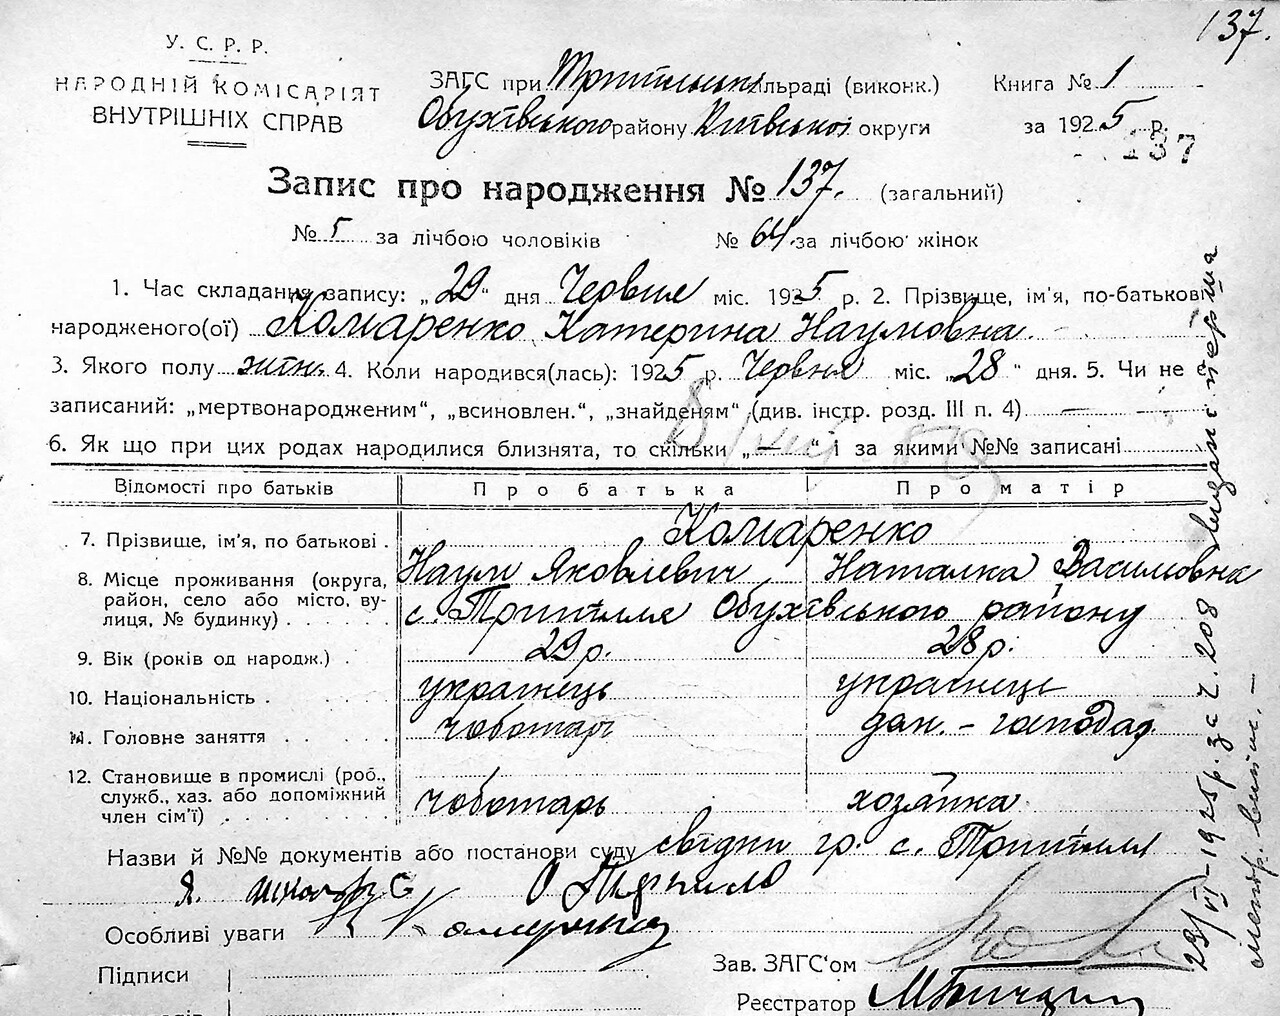 137.
У. С. Р. Р.
НАРОДНІЙ КОМІСАРІЯТ
ВНУТРІШНІХ СПРАВ
ЗАГС при Трипільськ ільраді (виконк.)
Обухівського району Київської округи
Книга № 1
за 1925 р.
137
Запис про народження № 137. (загальний)
№ 5 за лічбою чоловіків № 64 за лічбою жінок
1. Час складання запису: „29" дня Червня міс. 1925 р. 2. Прізвище, ім'я, по-батькові
народженого(ої) Комаренко Катерина Наумовна
3. Якого полу жін. 4. Коли народився(лась): 1925 р. Червня міс. „28" дня. 5. Чи не є
записаний: „мертвонародженим", „всиновлен.", „знайденям" (див. інстр. розд. III п. 4) —
6. Як що при цих родах народилися близнята, то скільки „—" і за якими №№ записані
Відомості про батьків Про батька Про матір
7. Прізвище, ім'я, по батькові . Комаренко
Наум Яковлевич Наталка Василювна
8. Місце проживання (округа, район, село або місто, вулиця, № будинку) . . . . . с. Трипілля Обухівського району
9. Вік (років од народж.) . 29 р. 28 р.
10. Національність . українець українец
11. Головне заняття . . . . . чоботарь дом. - господар.
12. Становище в промислі (роб., служб., хаз. або допоміжний член сім'ї) . . . . . чоботарь хозяйка
Назви й №№ документів або постанови суду свідки гр. с. Трипілля
Я.
Особливі уваги
Підписи
Зав. ЗАГС'ом
Реєстратор
23/VI-1925 р. за ч. 208 видані перша